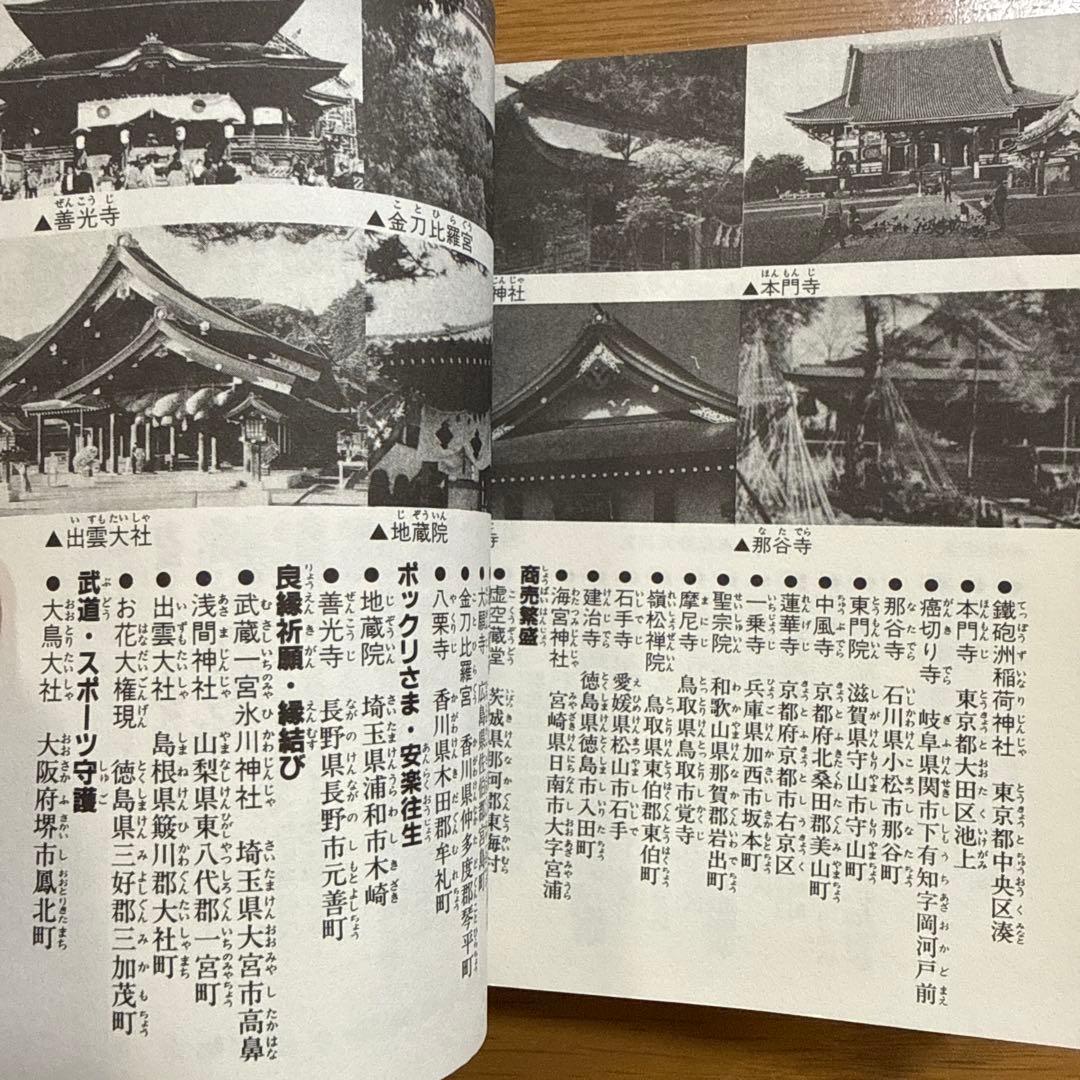 ▲本門寺
神社
▲那谷寺
寺
●鐵砲洲稲荷神社 東京都中央区湊
●本門寺 東京都大田区池上
●那谷寺 石川県小松市那谷町
●癌切り寺 岐阜県関市下有知字岡河戸前
●東門院 滋賀県守山市守山町
●中風寺 京都府北桑田郡美山町
●蓮華寺 京都府京都市右京区
●一乗寺 兵庫県加西市坂本町
●聖宗院 和歌山県那賀郡岩出町
●摩尼寺 鳥取県鳥取市覚寺
●嶺松禅院 鳥取県東伯郡東伯町
●石手寺 愛媛県松山市石手
●建治寺 徳島県徳島市入田町
●海宮神社 宮崎県日南市大字宮浦
商売繁盛
●虚空蔵堂 茨城県那珂郡東海村
▲善光寺
▲金刀比羅宮
▲出雲大社
▲地蔵院
●金刀比羅宮 香川県仲多度郡琴平町
●八栗寺 香川県木田郡牟礼町
ポックリさま・安楽往生
●地蔵院 埼玉県浦和市木崎
●善光寺 長野県長野市元善町
良縁祈願・縁結び
●武蔵一宮氷川神社 埼玉県大宮市高鼻
●浅間神社 山梨県東八代郡一宮町
●出雲大社 島根県簸川郡大社町
●お花大権現 徳島県三好郡三加茂町
武道・スポーツ守護
●大鳥大社 大阪府堺市鳳北町